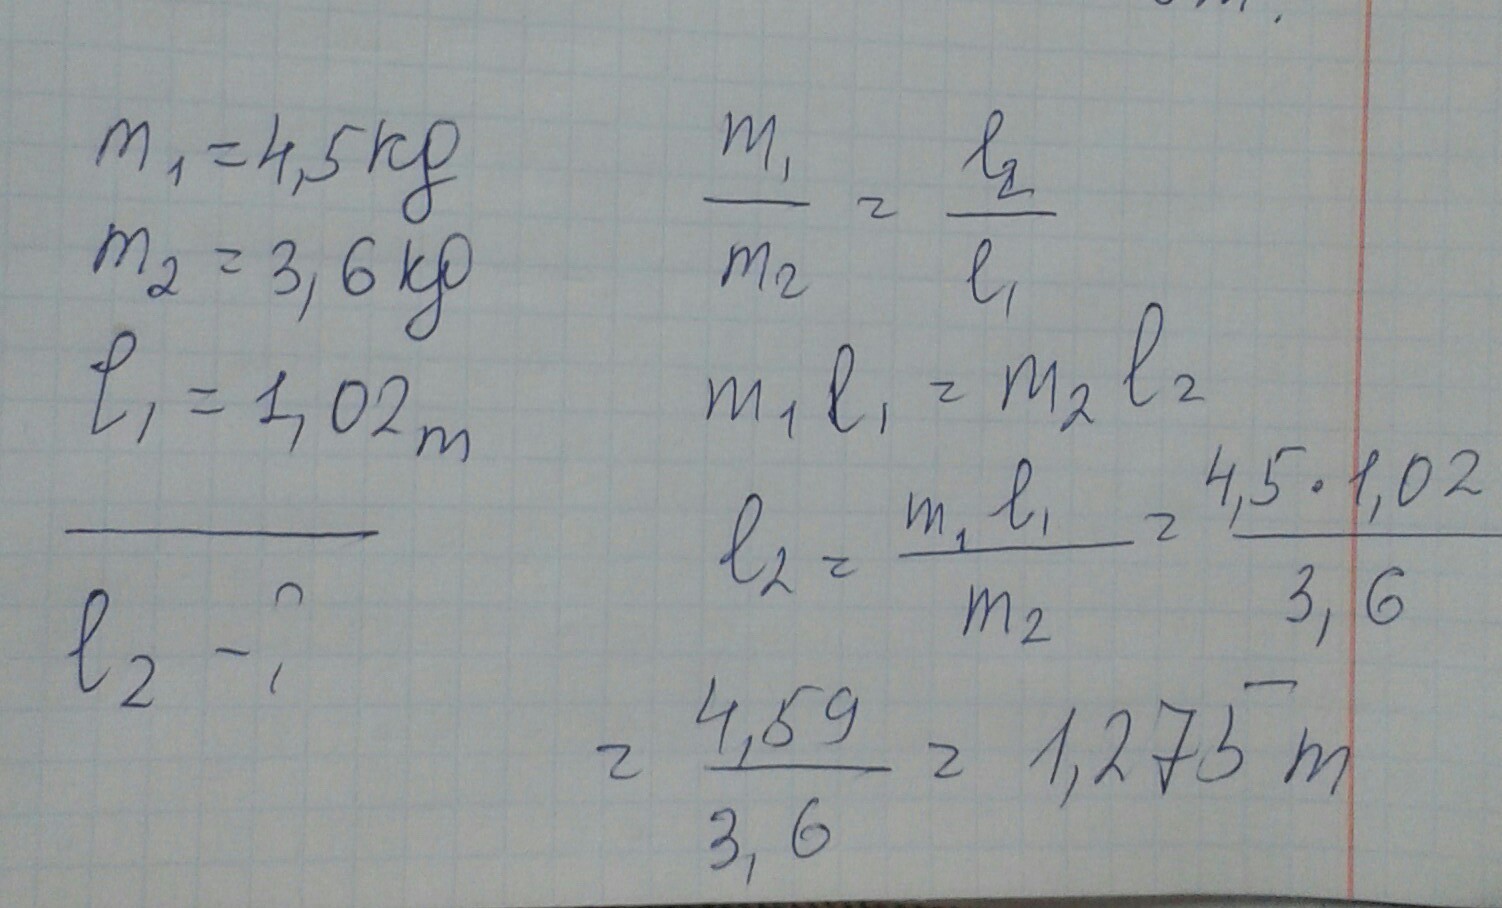 m₁ = 4,5 kg
m₂ = 3,6 kg
l₁ = 1,02 m
l₂ - ?
m₁ / m₂ = l₂ / l₁
m₁ l₁ = m₂ l₂
l₂ = m₁ l₁ / m₂ = 4,5 · 1,02 / 3,6
= 4,59 / 3,6 = 1,275 m